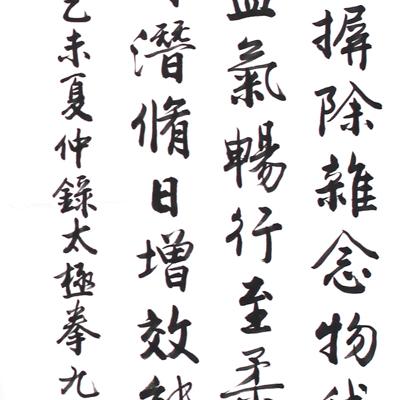 摒除雜念物
氣暢行至柔
潛脩日增效
乙未夏仲錄太極拳九